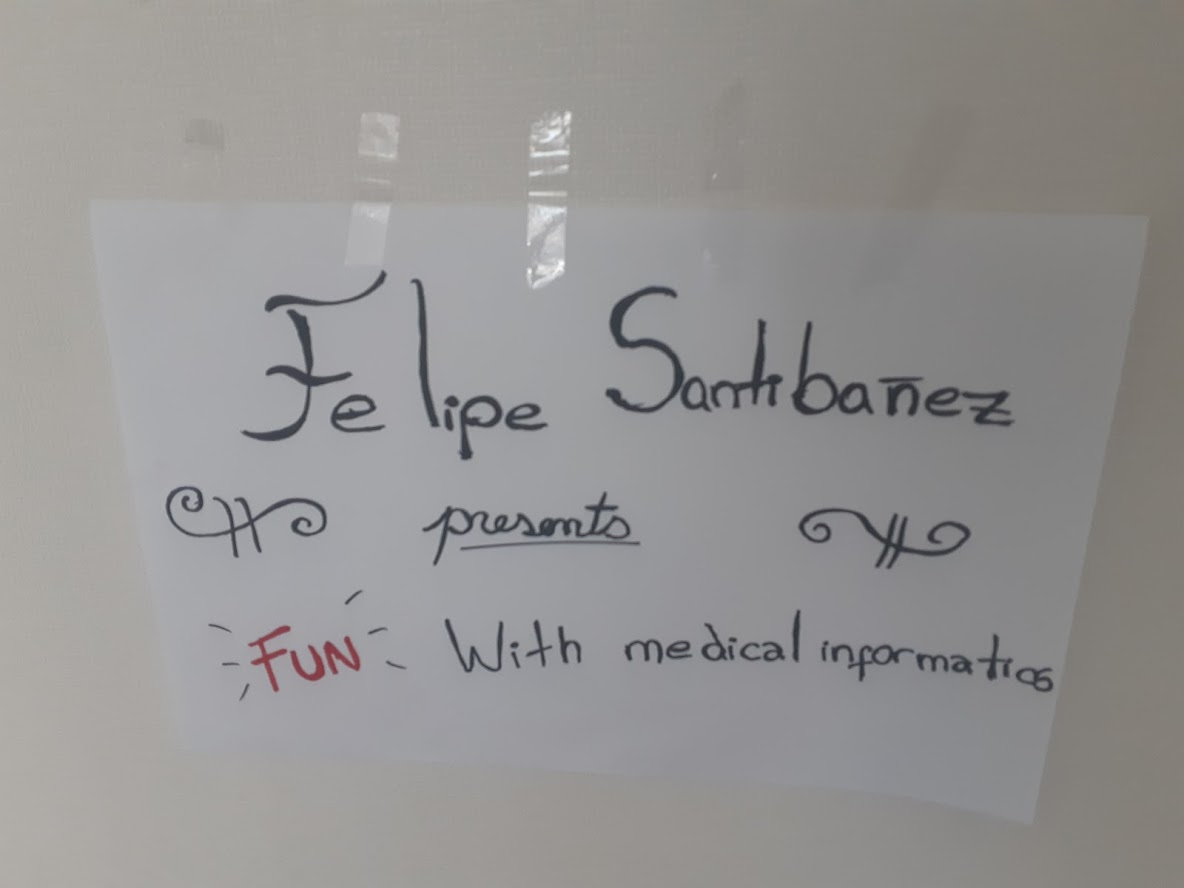 Felipe Santibañez
presents
FUN With medical informatics